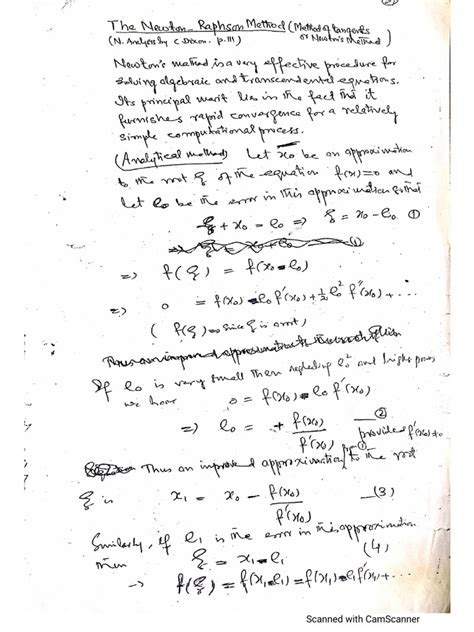 The Newton-Raphson Method (Method of tangents
(N. Analysis by C Dixon. p.111) or Newton's method)
Newton's method is a very effective procedure for
solving algebraic and transcendental equations.
Its principal merit lies in the fact that it
furnishes rapid convergence for a relatively
simple computational process.
(Analytical method) Let x₀ be an approximation
to the root ξ of the equation f(x)=0 and
let e₀ be the error in this approximation so that
ξ = x₀ - e₀ ①
⇒ f(ξ) = f(x₀-e₀)
⇒ 0 = f(x₀) - e₀f'(x₀) + ½e₀²f''(x₀) + ...
(f(ξ)=0 since ξ is a root)
If e₀ is very small then neglecting e₀² and higher powers
we have 0 = f(x₀) - e₀f'(x₀)
⇒ e₀ = + f(x₀)/f'(x₀) ② provided f'(x₀)≠0
Thus an improved approximation to the root
ξ is x₁ = x₀ - f(x₀)/f'(x₀) (3)
Similarly, if e₁ is the error in this approximation
then ξ = x₁-e₁ (4)
→ f(ξ) = f(x₁-e₁) = f(x₁)-e₁f'(x₁)+...
Scanned with CamScanner